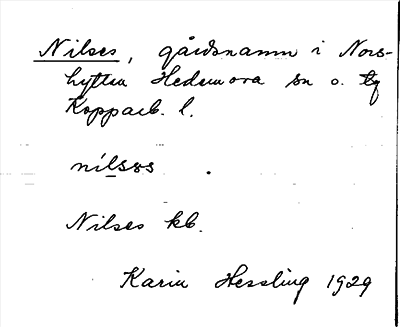 Nilses, gårdsnamn i Nors-
hyttan Hedemora sn o. tg
Kopparb. l.
nilsəs
Nilses kb.
Karin Hessling 1929